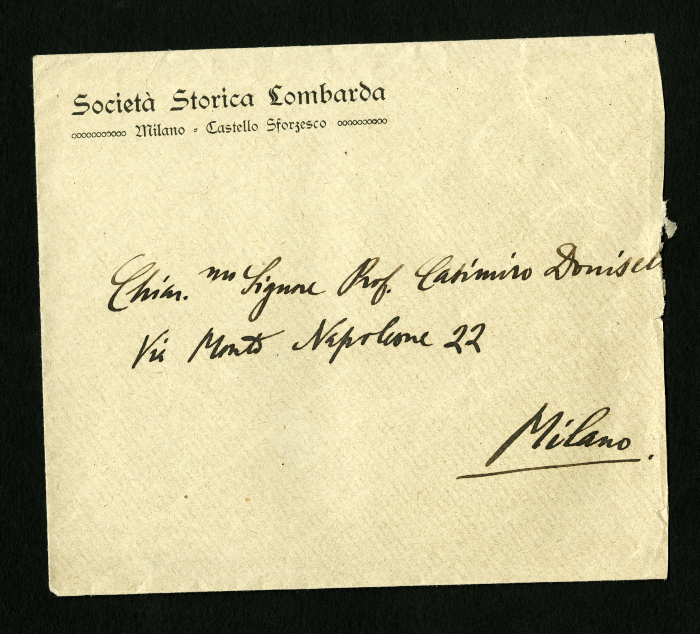 Società Storica Lombarda
Milano - Castello Sforzesco
Chiar. mo Signore Prof. Casimiro Donisel
Via Monte Napoleone 22
Milano.